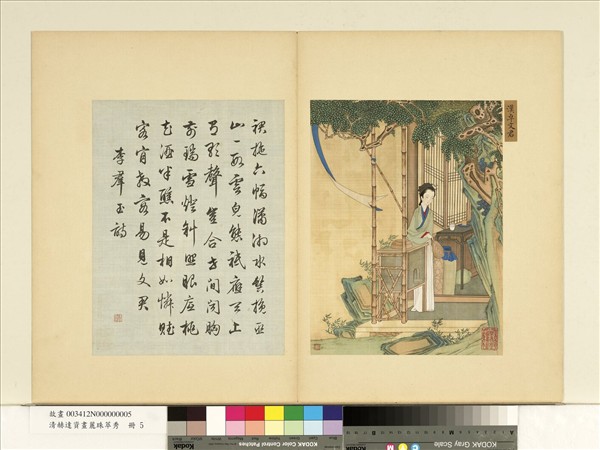 漢卓文君
裙拖六幅瀟湘水鬢挽巫
山一段雲貌態祗應天上
有歌聲豈合世間聞胸
前瑞雪燈斜照眼底桃
花酒半醺不是相如憐賦
客肯教容易見文君
李羣玉詩
故畫 003412N000000005
清赫達資畫麗珠萃秀 冊 5
KODAK Color Control Patches
KODAK Gray Scale